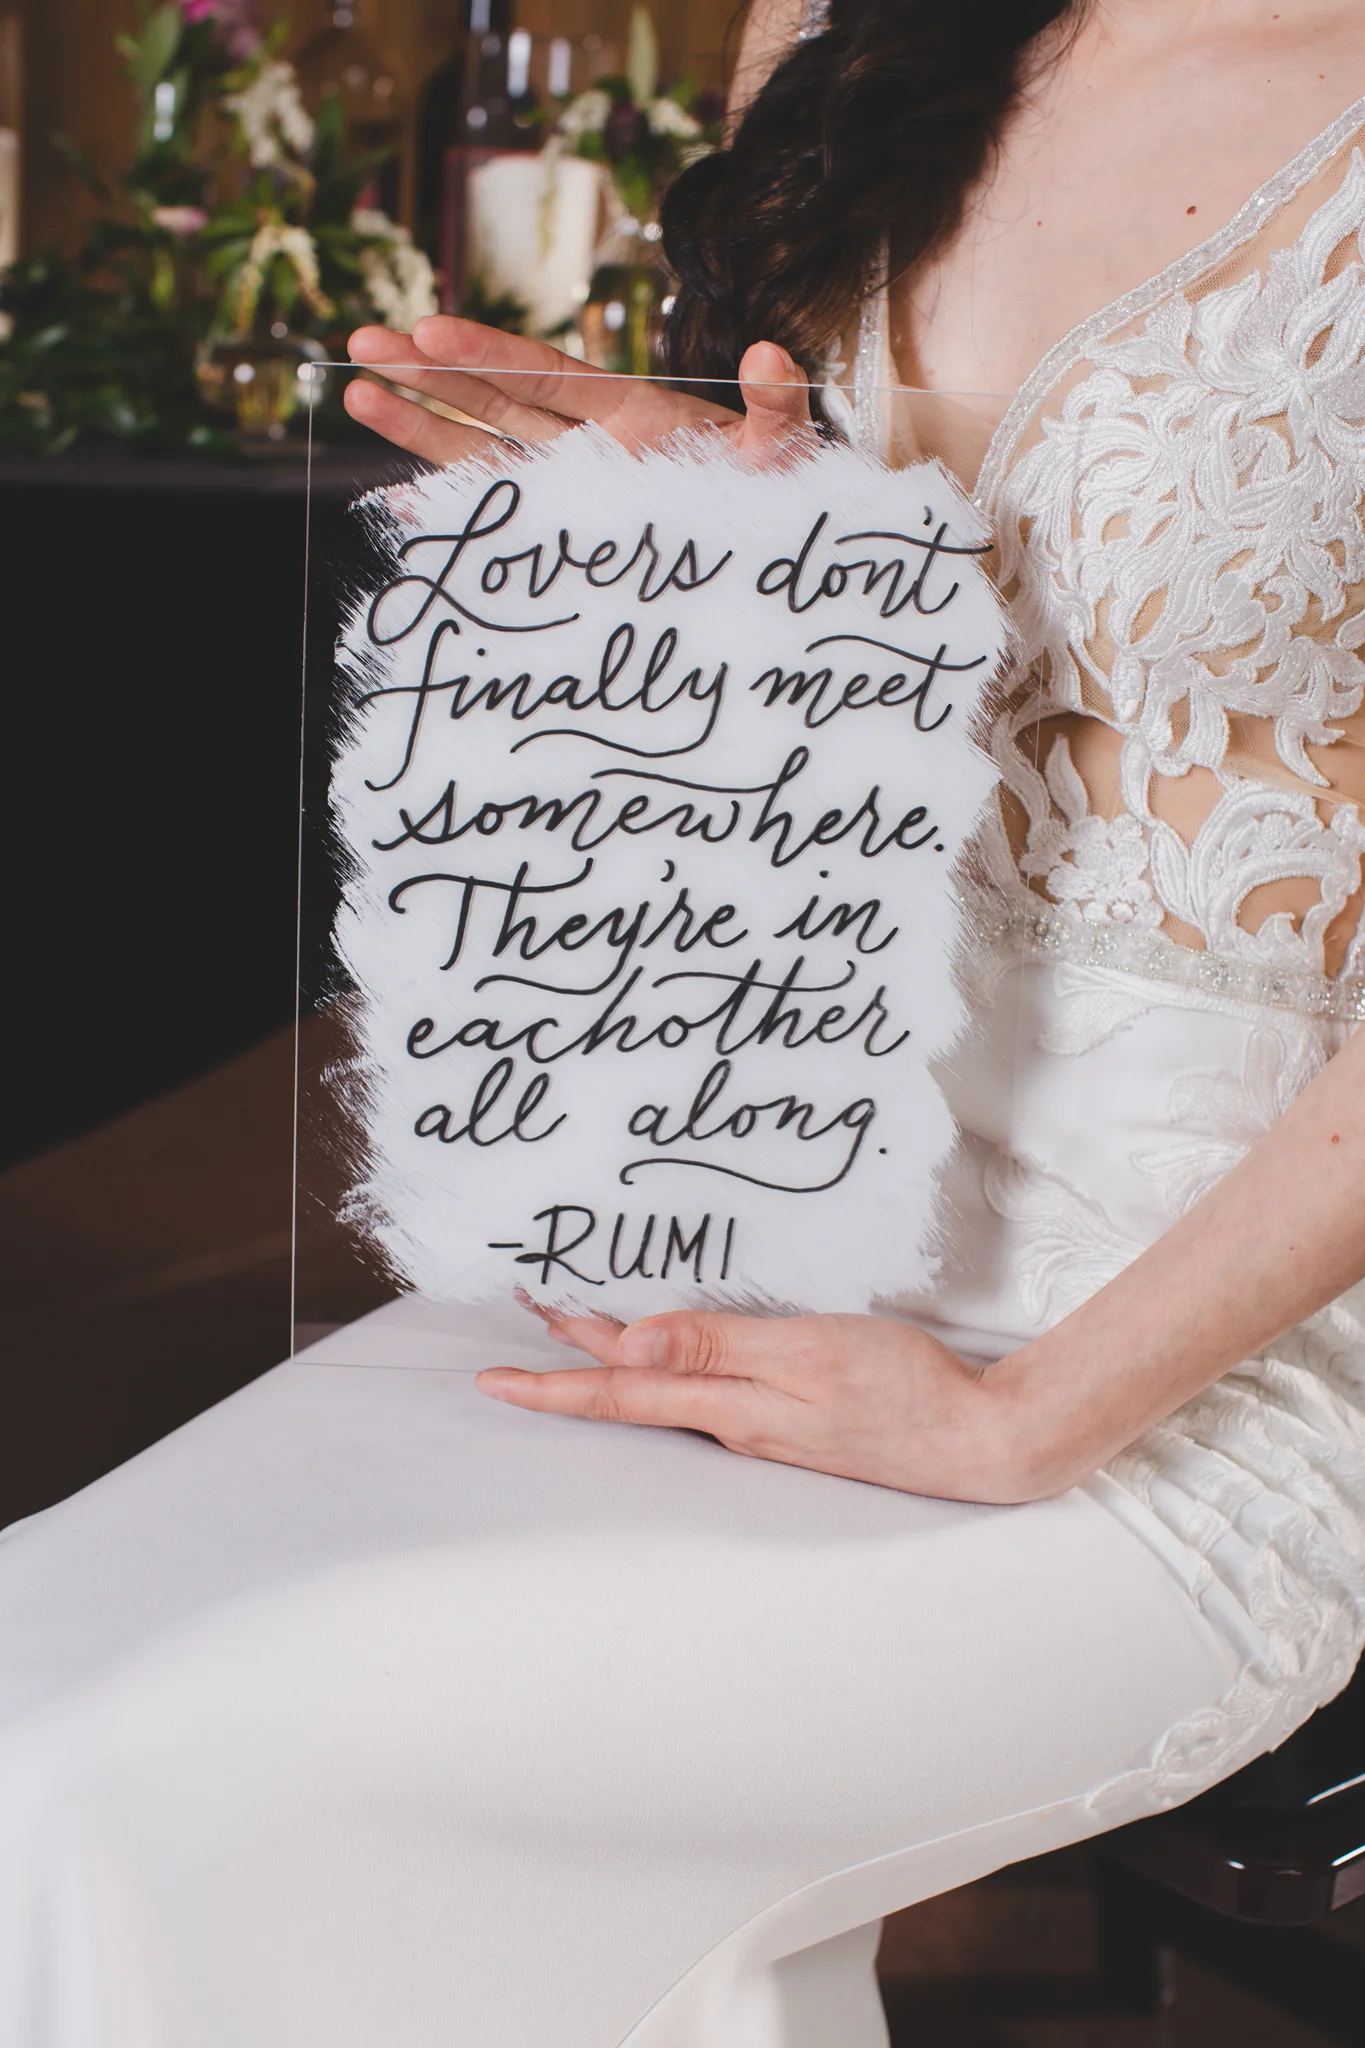 Lovers don't
finally meet
somewhere.
They're in
eachother
all along.
-RUMI